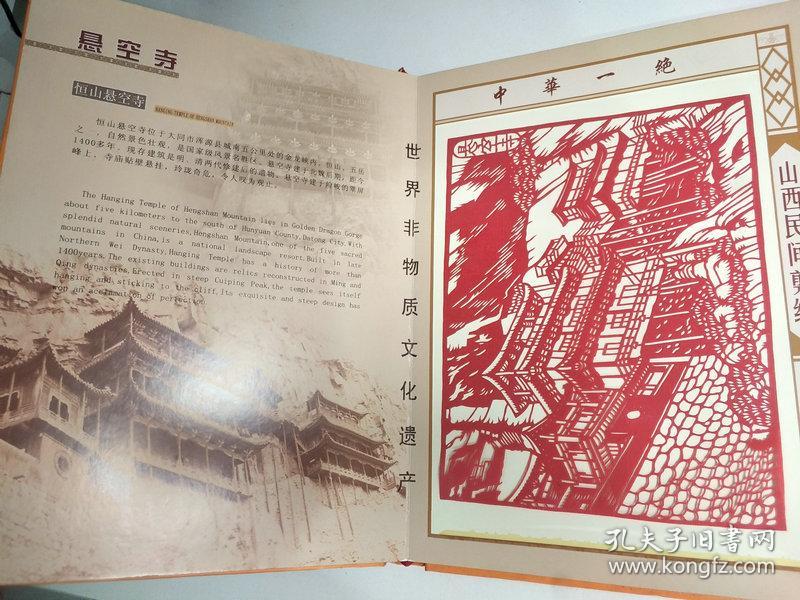 悬空寺
恒山悬空寺
HANGING TEMPLE OF HENGSHAN MOUNTAIN
恒山悬空寺位于大同市浑源县城南五公里处的金龙峡内，恒山，五岳
之一，自然景色壮观，是国家级风景名胜区。悬空寺建于北魏后期，距今
1400多年，现存建筑是明、清两代修建后的遗物。悬空寺建于险峻的翠屏
峰上，寺庙贴壁悬挂，玲珑奇危，令人叹为观止。
The Hanging Temple of Hengshan Mountain lies in Golden Dragon Gorge
about five kilometers to the south of Hunyuan County,Datong City.With
splendid natural sceneries,Hengshan Mountain,one of the five sacred
mountains in China,is a national landscape resort.Built in late
Northern Wei Dynasty,Hanging Temple has a history of more than
1400years.The existing buildings are relics reconstructed in Ming and
Qing dynasties.Erected in steep Cuiping Peak,the temple sees itself
hanging and sticking to the cliff.Its exquisite and steep design has
won an acclamation of perfection.
世界非物质文化遗产
中華一絶
悬空寺
山西民间剪纸
孔夫子旧书网
www.kongfz.com